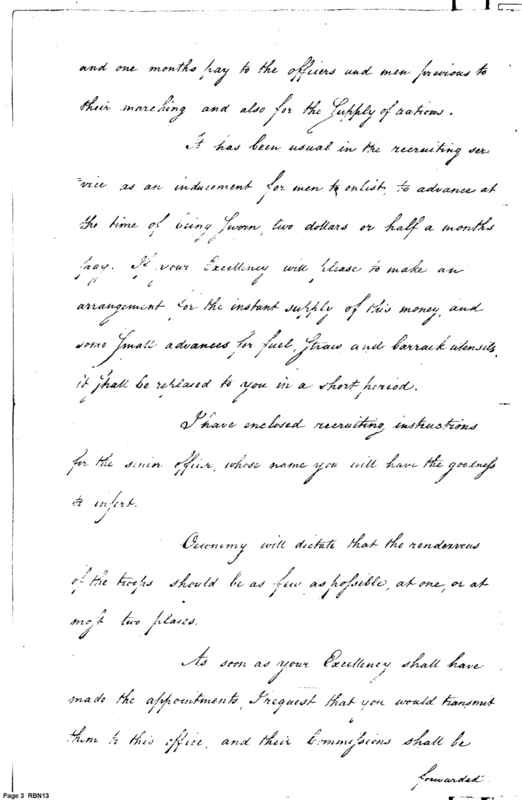 and one months pay to the officers and men previous to
their marching and also for the Supply of rations.
It has been usual in the recruiting ser
=vice as an inducement for men to enlist, to advance at
the time of being Sworn, two dollars or half a months
pay. If your Excellency will please to make an
arrangement for the instant supply of this money, and
some Small advances for fuel, Straw and barrack utensils,
it shall be replased to you in a short period.
I have enclosed recruiting instructions
for the senior officer, whose name you will have the goodness
to insert.
Oeconomy will dictate that the rendezvous
of the troops should be as few as possible, at one, or at
most two places.
As soon as your Excellency shall have
made the appointments, I request that you would transmit
them to this office, and their Commissions shall be
forwarded
Page 3 RBN13